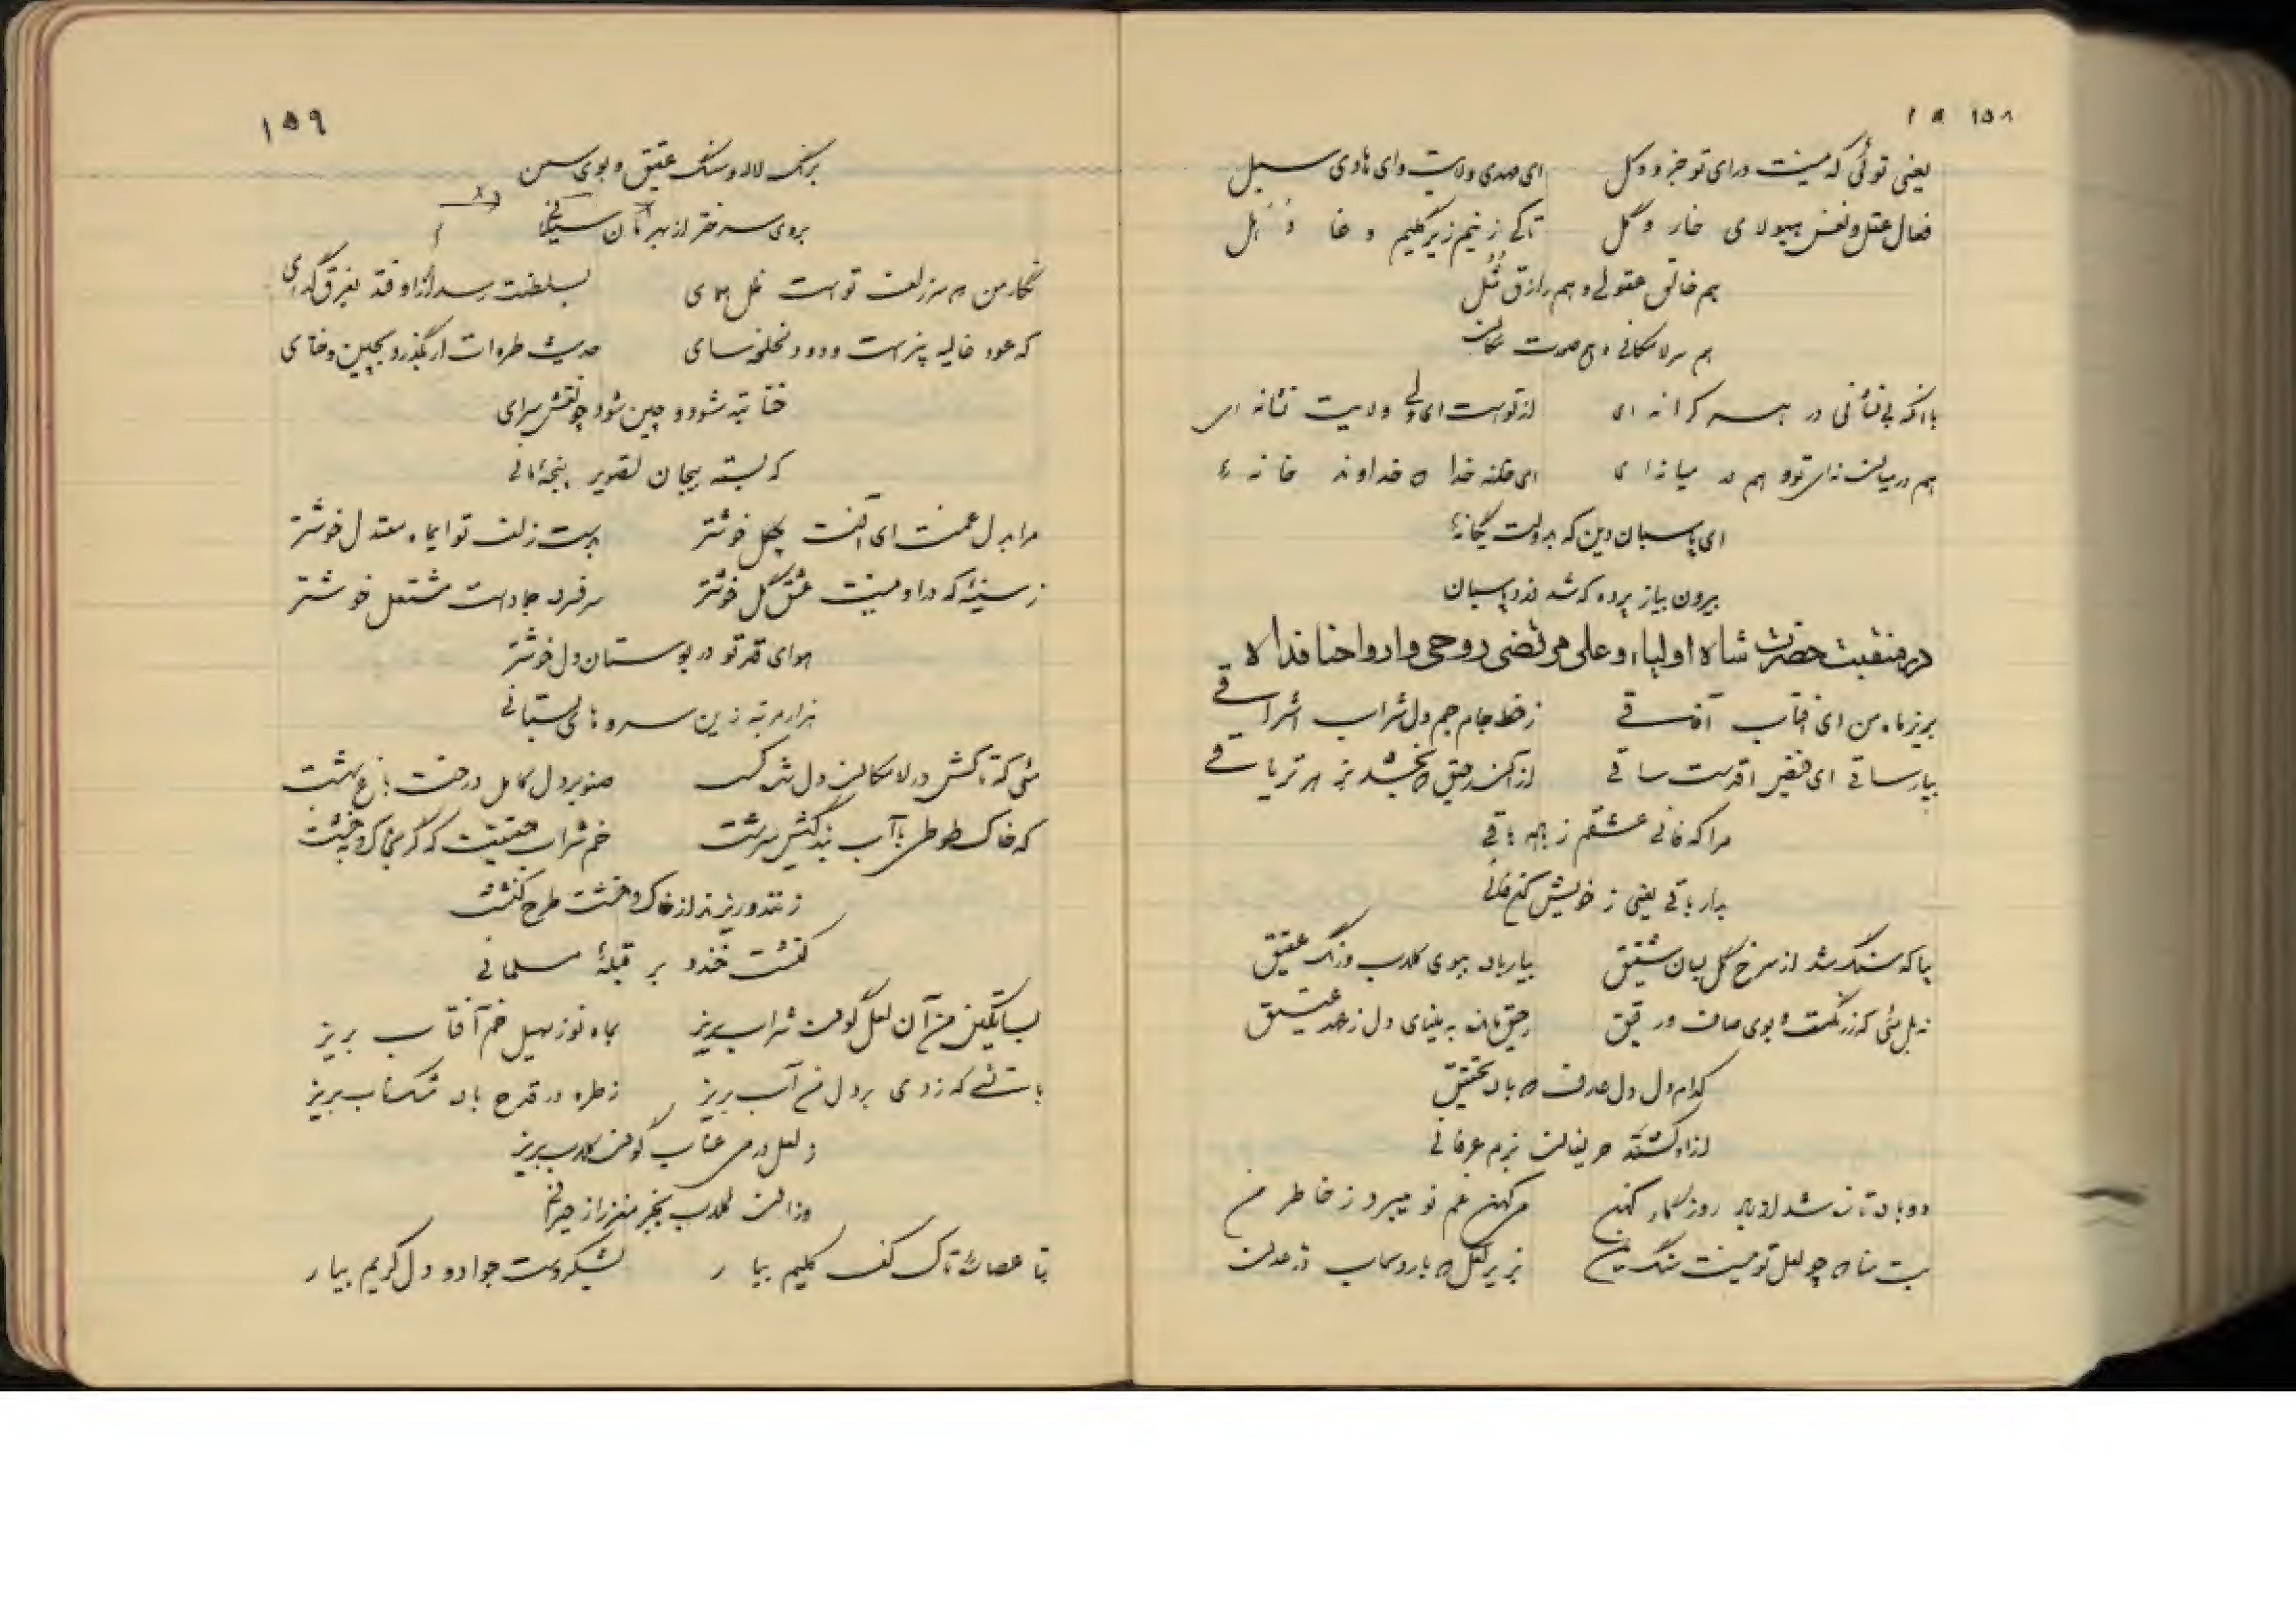 ۱۵۸
یعنی توئی که نیست ورای تو جزو و کل ای مهدی ولایت و ای هادی سبل
فعال عقل و نفس هیولای خار و گل تا کی زنیم زیر گلیم
هم خالق عقولی و هم رازق مُثُل
هم سر لامکانی و هم صورت مکان
با آنکه بی نشانی در هر کرانه ای از توست ای ولی ولایت نشانه ای
هم در میان نه ای تو و هم در میانه ای ای خانه خدا و خداوند خانهٔ
ای پاسبان دین که به دولت یگانهٔ
بیرون بیا ز پرده که شد دزد پاسبان
در منقبت حضرت شاه اولیاء و علی مرتضی روحی و ارواحنا فداه
بریز ماه من ای آفتاب آفاقی ز خط جام جم دل شراب اشراقی
بیار ساقی ای فیض اقدست ساقی از آن رحیق که بخشد بزهر تریاقی
مرا که فانی عشقم ز باده باقی
بیار باقی یعنی ز خویش کن فانی
بیا که سنگ شد از سرخ گل بسان شقیق بیار باده ببوی گلاب و رنگ عقیق
نه بل مئی که ز رنگست و بوی صاف و رقیق رحیق مانده به مینای دل ز عهد عتیق
کدام دل دل صدف باده تحقیق
از او کشند حریفان بزم عرفانی
دو باده تازه شد از باد روزگار کهن می کهن غم نو میبرد ز خاطر من
بت منا چو لعل تو نیست سنگ یمن بریز لعل
۱۵۹
برنگ لاله و سنگ عقیق و بوی سمن
بروی سرختر از بهرمان سیلانی
نگار من سر زلف تو است ظل همای بسلطنت رسد ار زاوفتد بفرق گدای
که عود غالیه بیزست و دود لخلخه سای حدیث طره ات ار بگذرد بچین و ختای
ختا تبه شود و چین شود چو نقش سرای
که بسته بیجان تصویر پنجهٔ مانی
مرا به دل غمت ای آفت چگل خوشتر بدست زلف تو ایماه معتدل خوشتر
ز سینهٔ که در او نیست عشق گل خوشتر سر فسرده جادست مشتعل خوشتر
هوای قد تو در بوستان دل خوشتر
هزار مرتبه زین سروهای بستانی
مئی که تاکش در لامکان دل شد کشت صنوبر دل کامل درخت باغ بهشت
که خاک طوطی با آب زندگیش سرشت خم شراب حقیقت که گر می کرد خشت
ز نند و ریزند از خاک و خشت طرح کنشت
کنشت خندد بر قبلهٔ مسلمانی
بساتگین من آن لعل گون شراب بریز بماه نو ز سهیل خم آفتاب بریز
باتشی که زدی بر دل من آب بریز ز طره در قدح باده مشکناب بریز
ز لعل در می عناب گون گلاب بریز
وزان گلاب بخر مغزم از حیرانی
بتا عصای تاک کف کلیم بیار بشکر دست جواد و دل کریم بیار